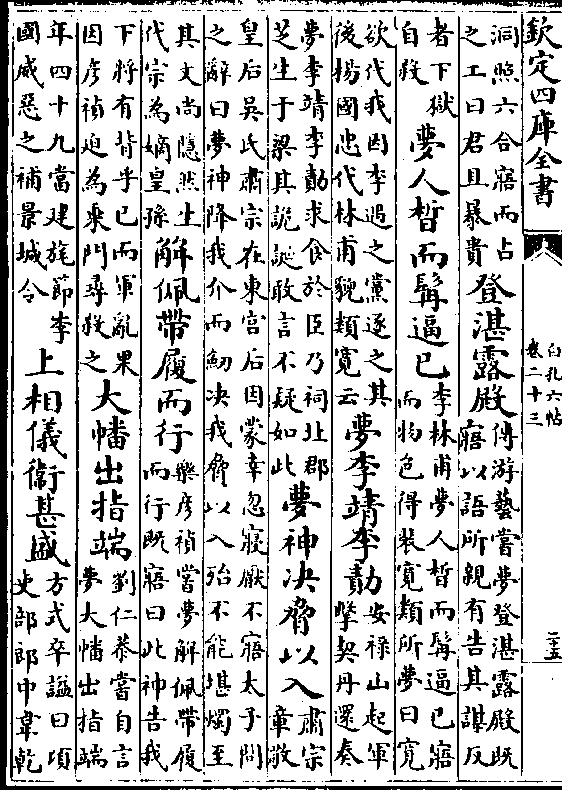 欽定四庫全書
白孔六帖
卷二十三
二十五
洞照六合寤而占
之工曰君且暴貴
登湛露殿
傅游藝嘗夢登湛露殿既
寤以語所親有告其謀反
者下獄
自殺
夢人皙而髯逼已
李林甫夢人皙而髯逼已寤
而物色得裴寬類所夢曰寬
欲代我因李適之黨逐之其
後楊國忠代林甫貌類寬云
夢李靖李勣
安祿山起軍
擊契丹還奏
夢李靖李勣求食於臣乃祠北郡
芝生于梁其詭誕敢言不疑如此
夢神决脅以入
肅宗
章敬
皇后吳氏肅宗在東宮后因蒙幸忽寢厭不寤太子問
之辭曰夢神降我介而劒决我脅以入殆不能堪燭至
其文尚隱然生
代宗為嫡皇孫
解佩帶履而行
樂彦禎嘗夢解佩帶履
而行既寤曰此神告我
下將有背乎已而軍亂果
因彦禎迫為桑門尋殺之
大幡出指端
劉仁恭嘗自言
夢大幡出指端
年四十九當建旄節李
國威惡之補景城令
上相儀衛甚盛
方式卒謚曰頃
吏部郎中韋乾